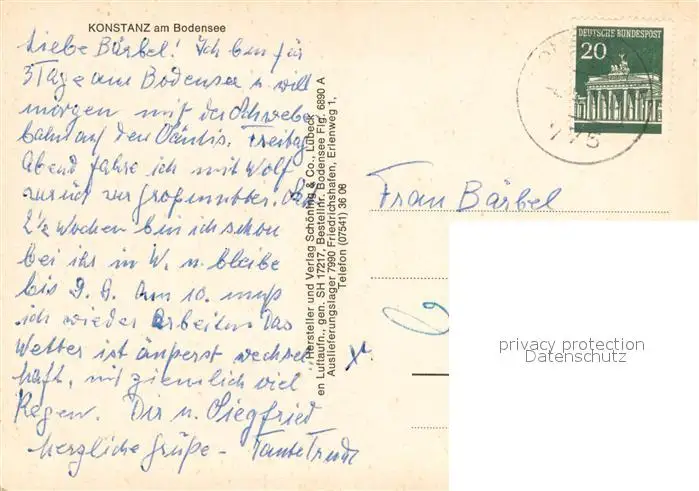 KONSTANZ am Bodensee
Liebe Bärbel! Ich bin für
3 Tage am Bodensee u. will
morgen mit der Schwebe
bahn auf den Säntis. Freitag
Abend fahre ich mit Wolf
zurück zur Großmutter. Seit
2½ Wochen bin ich schon
bei ihr in W. u. bleibe
bis 9. 9. Am 10. muß
ich wieder arbeiten. Das
Wetter ist äußerst wechsel
haft, mit ziemlich viel
Regen. Dir u. Siegfried
herzliche Grüße - Tante Trude
Hersteller und Verlag Schöning & Co., Lübeck
en Luftaufn., gen. SH 17217, Bestellnr. Bodensee Flg. 6890 A
Auslieferungslager 7990 Friedrichshafen, Erlenweg 1,
Telefon (07541) 36 06
DEUTSCHE BUNDESPOST
20
775
Frau Bärbel
privacy protection
Datenschutz